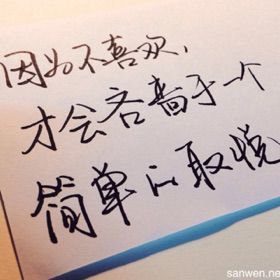 因为不喜欢,
才会吝啬于一个
简单的取悦
sanwen.ne